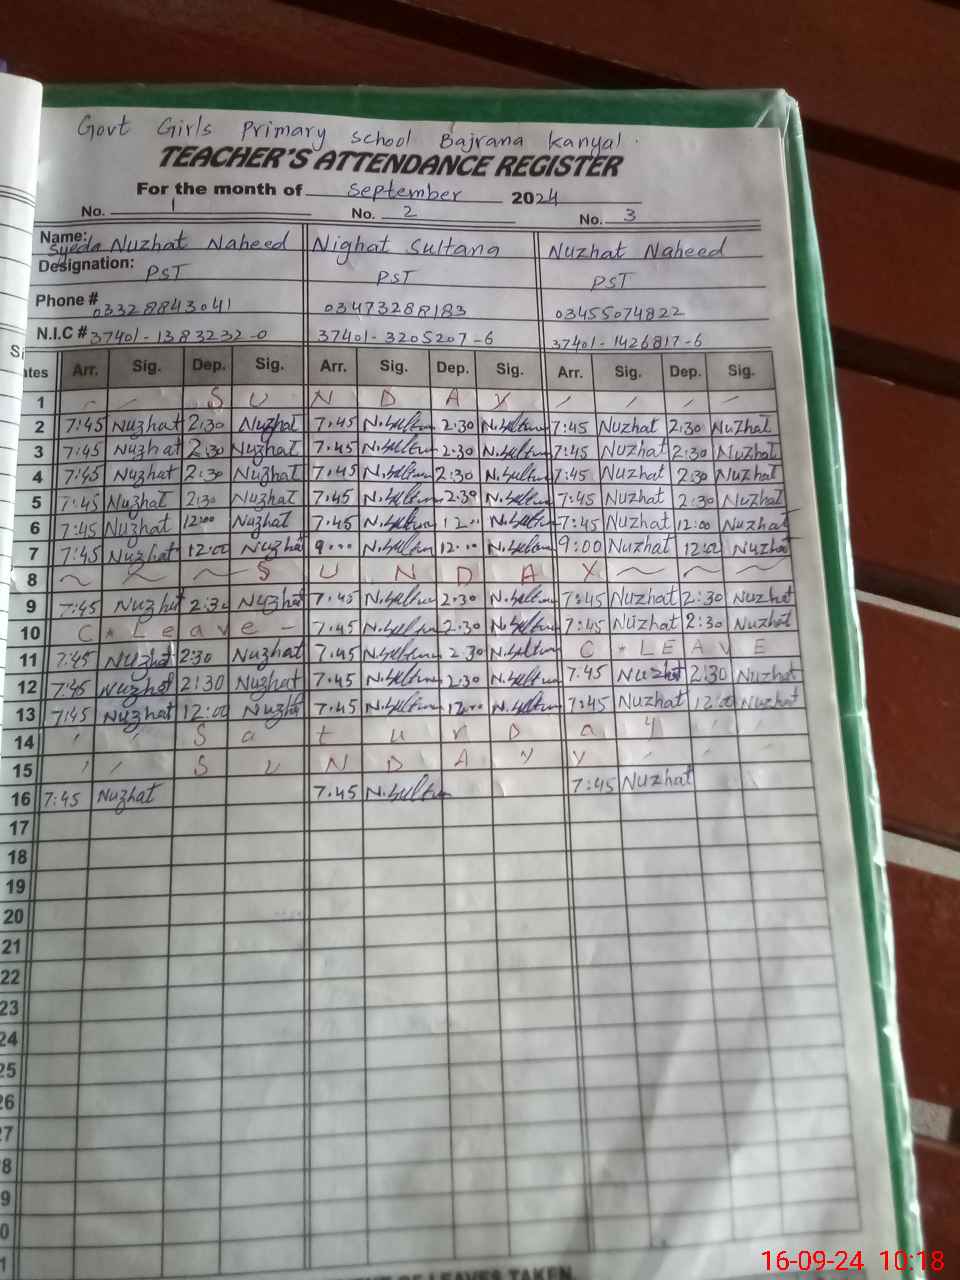 Govt Girls Primary school Bajrana Kanyal.
TEACHER'S ATTENDANCE REGISTER
For the month of September 2024
No. 1 No. 2 No. 3
Name: Syeda Nuzhat Naheed Nighat Sultana Nuzhat Naheed
Designation: PST PST PST
Phone # 03328843041 03473288183 03455074822
N.I.C # 37401-1383232-0 37401-3205207-6 37401-1426817-6
ates Arr. Sig. Dep. Sig. Arr. Sig. Dep. Sig. Arr. Sig. Dep. Sig.
1 S U N D A Y
2 7:45 Nuzhat 2:30 Nuzhat 7.45 N.Sultan 2.30 N.Sultan 7:45 Nuzhat 2:30 Nuzhat
3 7:45 Nuzhat 2:30 Nuzhat 7.45 N.Sultan 2.30 N.Sultan 7:45 Nuzhat 2:30 Nuzhat
4 7:45 Nuzhat 2:30 Nuzhat 7.45 N.Sultan 2:30 N.Sultan 7:45 Nuzhat 2:30 Nuzhat
5 7:45 Nuzhat 2:30 Nuzhat 7.45 N.Sultan 2.30 N.Sultan 7:45 Nuzhat 2:30 Nuzhat
6 7:45 Nuzhat 12:00 Nuzhat 7.45 N.Sultan 12.00 N.Sultan 7:45 Nuzhat 12:00 Nuzhat
7 7:45 Nuzhat 12:00 Nuzhat 9.00 N.Sultan 12.00 N.Sultan 9:00 Nuzhat 12:00 Nuzhat
8 S U N D A Y
9 7:45 Nuzhat 2:30 Nuzhat 7.45 N.Sultan 2.30 N.Sultan 7:45 Nuzhat 2:30 Nuzhat
10 C. Leave - 7.45 N.Sultan 2.30 N.Sultan 7:45 Nuzhat 2:30 Nuzhat
11 7:45 Nuzhat 2:30 Nuzhat 7.45 N.Sultan 2.30 N.Sultan C. LEAVE
12 7:45 Nuzhat 2:30 Nuzhat 7.45 N.Sultan 2.30 N.Sultan 7:45 Nuzhat 2:30 Nuzhat
13 7:45 Nuzhat 12:00 Nuzhat 7.45 N.Sultan 12.00 N.Sultan 7:45 Nuzhat 12:00 Nuzhat
14 S a t u r D a y
15 S U N D A Y Y
16 7:45 Nuzhat 7.45 N.Sultan 7:45 Nuzhat
17
18
19
20
21
22
23
24
25
26
27
8
9
0
1
OF LEAVES TAKEN
16-09-24 10:18